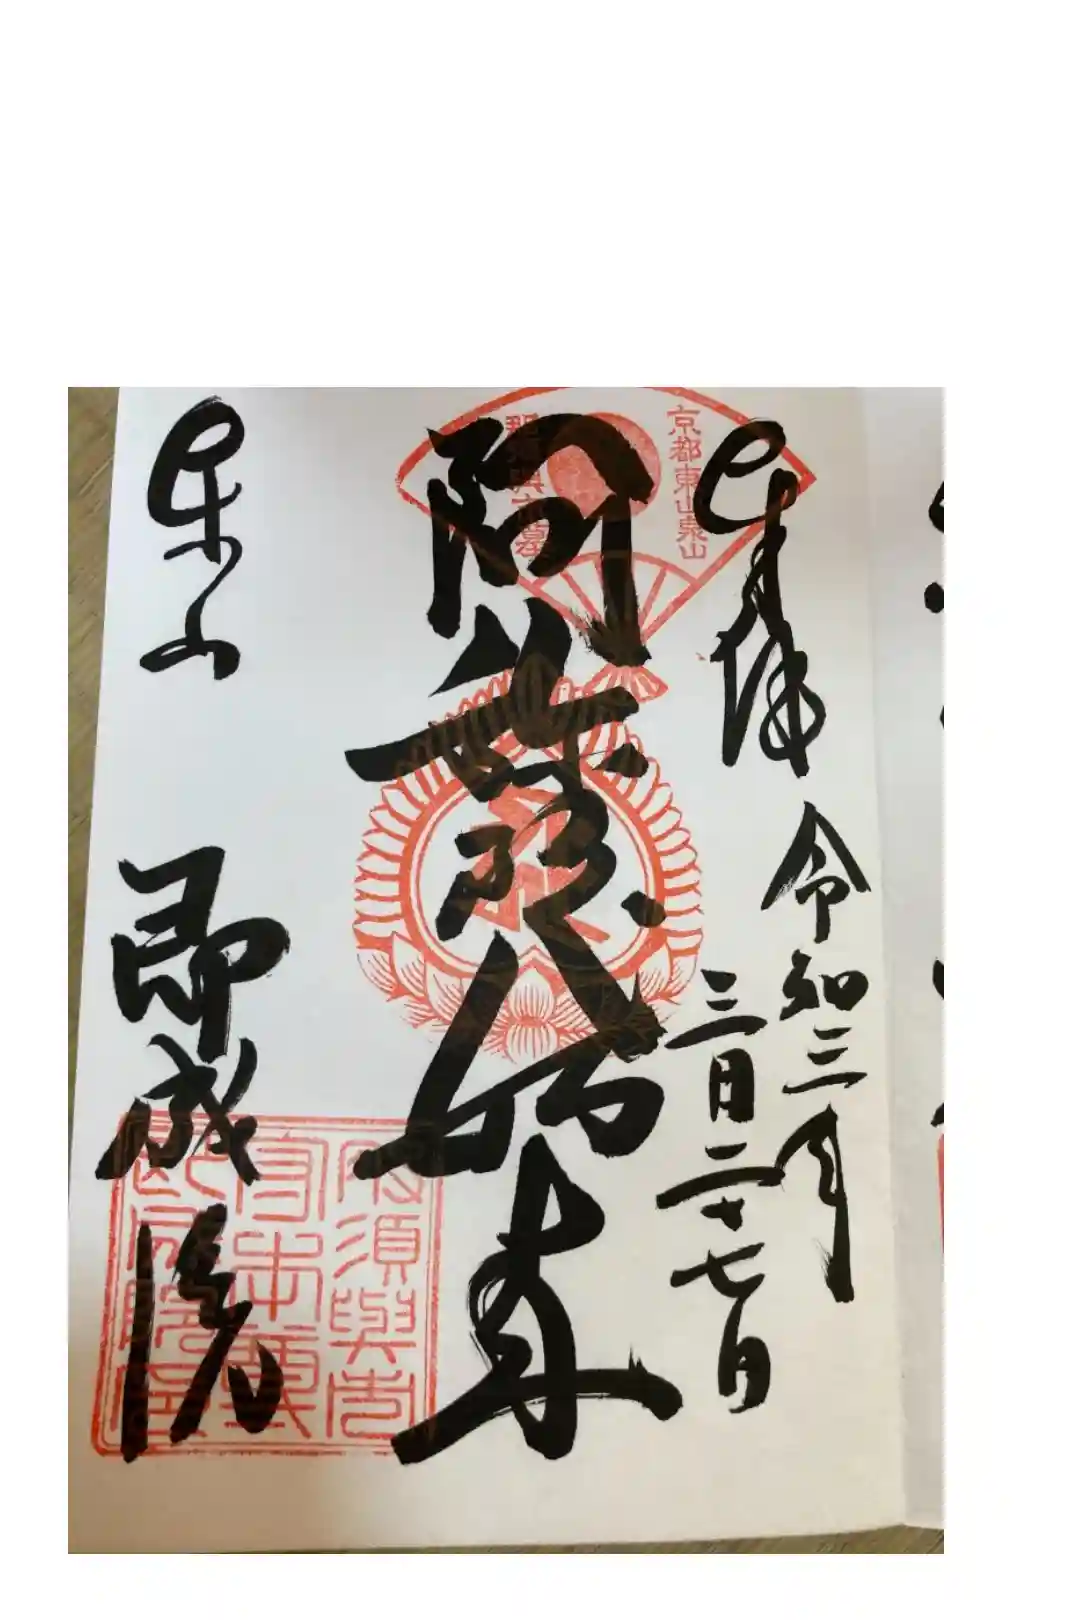 奉拝
令和三年
三月二十七日
京都東山泉山
那須與市墓
阿弥陀如来
泉山
即成院
那須與市